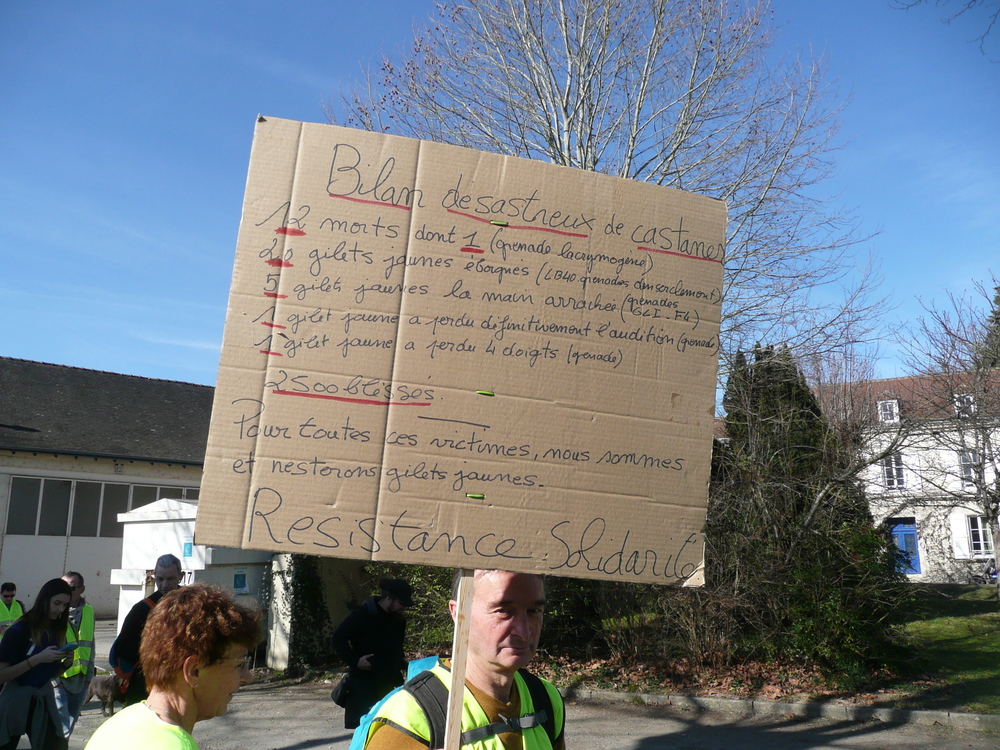 Bilan desastreux de castaner
12 morts dont 1 (grenade lacrymogène)
20 gilets jaunes éborgnés (LB40. grenades désencerclement)
5 gilets jaunes la main arrachée (grenades GLI-F4)
1 gilet jaune a perdu définitivement l'audition (grenade)
1 gilet jaune a perdu 4 doigts (grenade)
2500 blessés.
Pour toutes ces victimes, nous sommes
et resterons gilets jaunes.
Resistance Solidarité